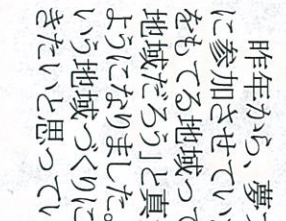 昨年から、夢
に参加させてい
をもてる地域って
地域だろう」と真
ようになりました。
いう地域づくりに
きたいと思ってい